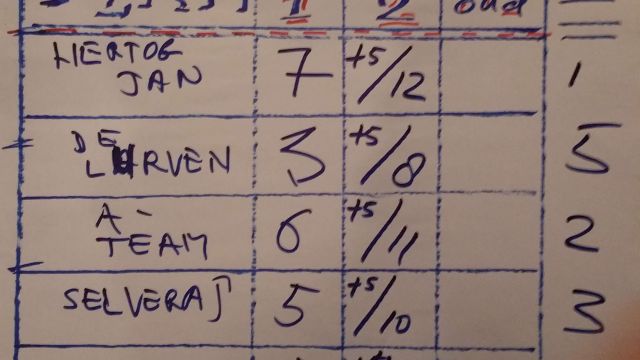 1 2
HERTOG
JAN 7 +5/12 1
DE
LARVEN 3 +5/8 5
A-
TEAM 6 +5/11 2
SELVERAJ 5 +5/10 3